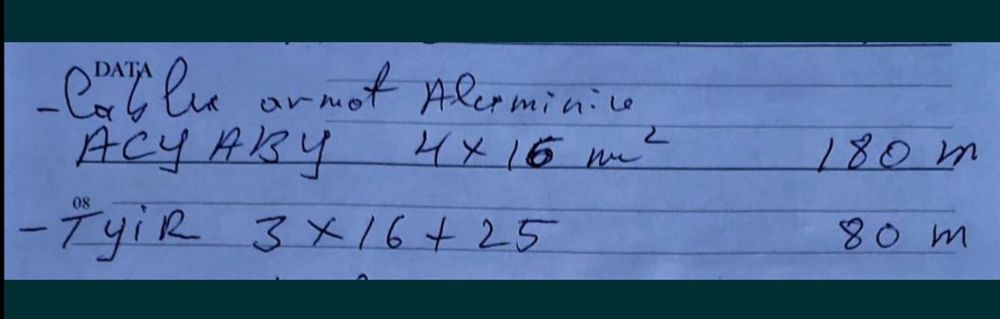 DATA
- Cablu armat Aluminiu
ACYABY 4x16 m² 180 m
08
- TyiR 3x16+25 80 m